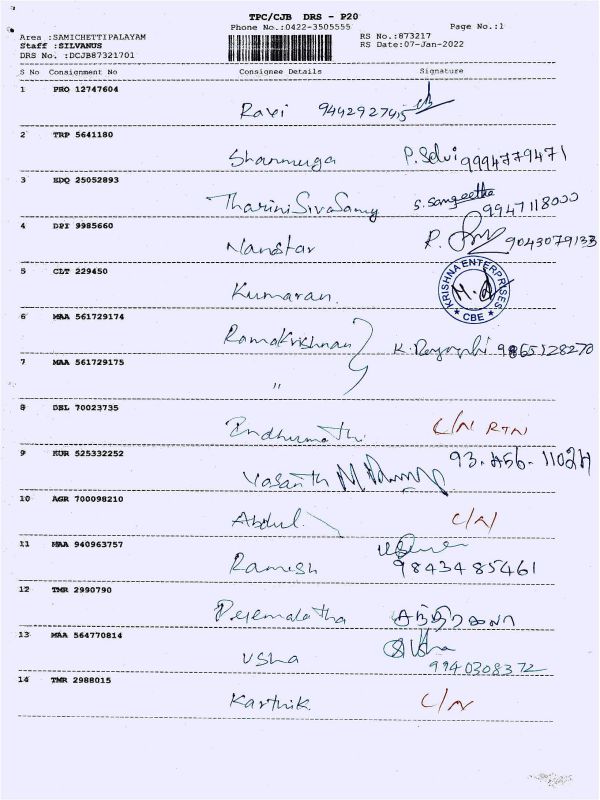 TPC/CJB DRS - P20
Phone No.:0422-3505555 Page No.:1
Area :SAMICHETTIPALAYAM RS No.:873217
Staff :SILVANUS RS Date:07-Jan-2022
DRS No. :DCJB87321701
S No Consignment No Consignee Details Signature
1 PRO 12747604
Ravi 9442927415
2 TRP 5641180
Shanmuga P. Selvi 9994779471
3 EDQ 25052893
Tharini Siva Samy S. Sangeetha 9994711800
4 DPI 9985660
Nanstar P. 9043079133
5 CLT 229450
Kumaran. KRISHNA ENTERPRISES CBE
6 MAA 561729174
Ramakrishnan K. 9865128270
7 MAA 561729175
"
8 DEL 70023735
Indhumathi C/N RTN
9 KUR 525332252
Vasanth 93.456.11024
10 AGR 700098210
Abdul. C/N
11 MAA 940963757
Ramesh 9843485461
12 TMR 2990790
Premalatha சந்திரகலா
13 MAA 564770814
Usha Usha
9940308372
14 TMR 2988015
Karthik. C/N